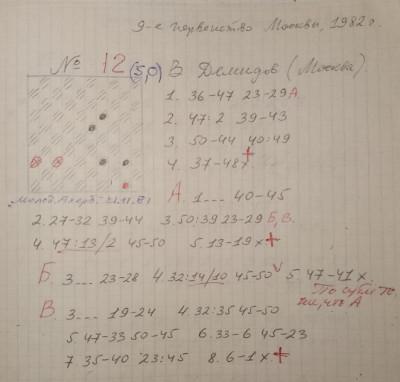 9-е первенство Москвы, 1982 г.
№ 12 (5,0) В Демидов (Москва)
1. 36-47 23-29 А
2. 47:2 39-43
3. 50-44 40:49
4. 37-48х+
А. 1... 40-45
2. 27-32 39-44 3. 50:39 23-29 Б, В.
4. 47:13/2 45-50 5. 13-19х+
Б. 3... 23-28 4. 32:14/10 45-50 5. 47-41х
То
что, А
В. 3... 19-24 4. 32:35 45-50
5. 47-33 50-45 6. 33-6 45-23
7. 35-40 23:45 8. 6-1х+